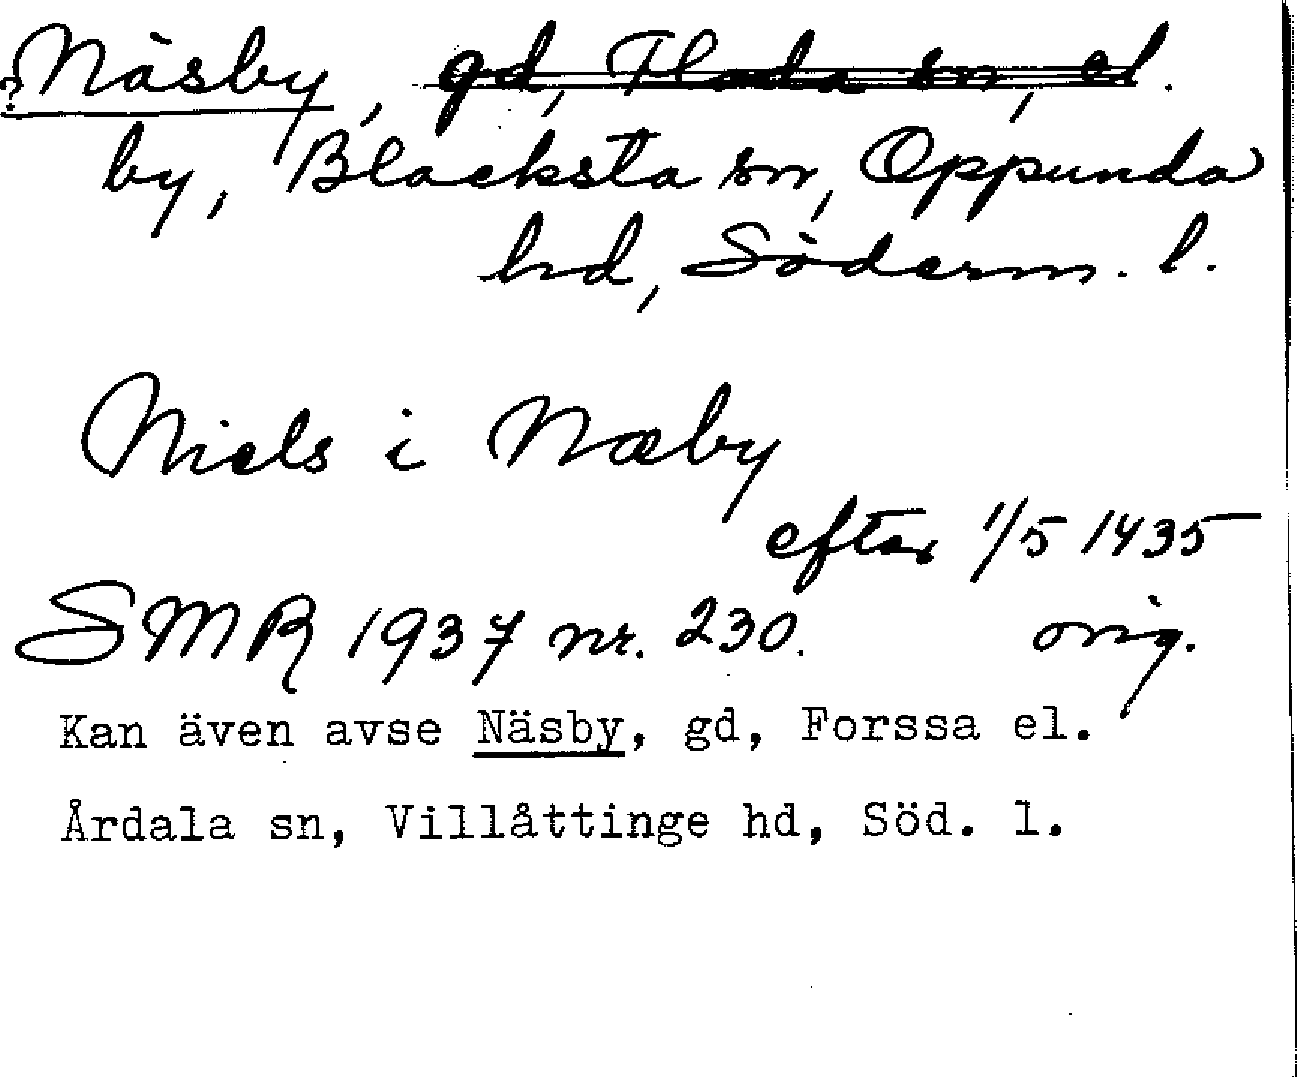 ?Näsby, gd, Floda sn, el.
by, Blacksta sn, Oppunda
hd, Söderm. l.
Niels i Næby
efter 1/5 1435
SMR 1937 nr. 230. orig.
Kan även avse Näsby, gd, Forssa el.
Årdala sn, Villåttinge hd, Söd. l.